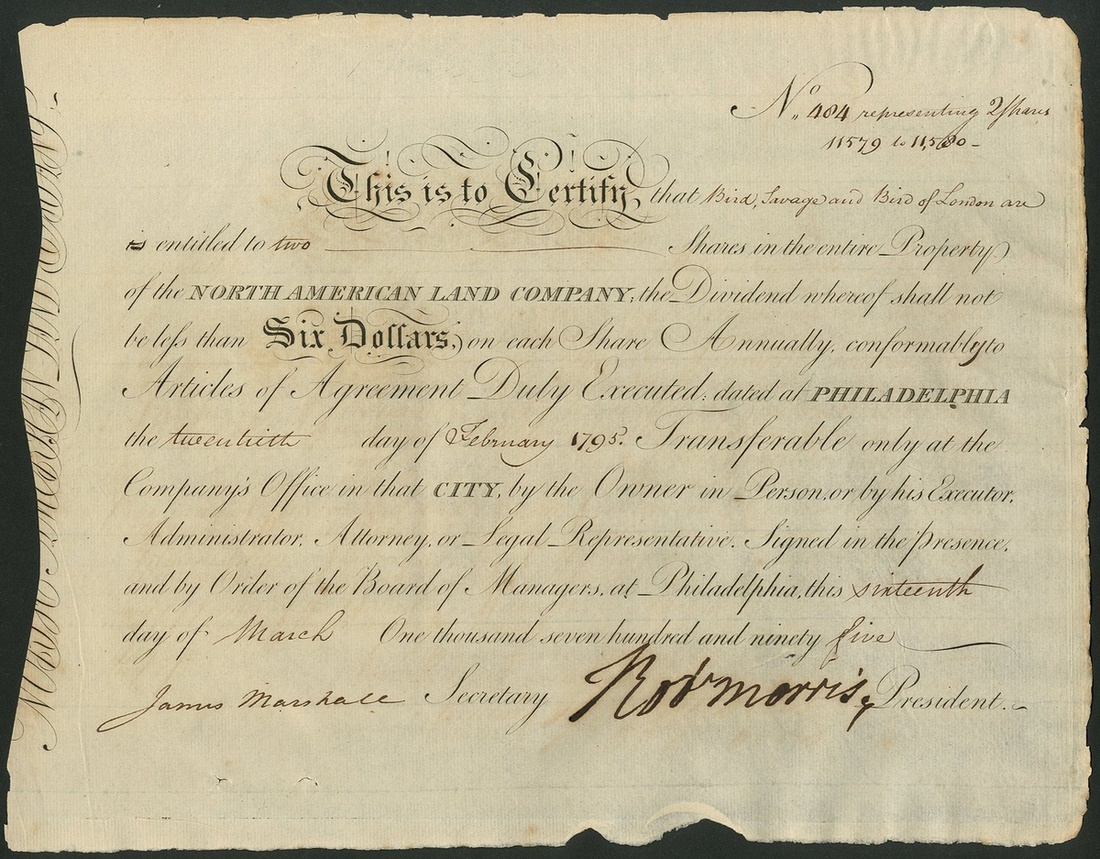 No. 484 representing 2 shares
11579 to 11,580-
This is to Certify, that Bird, Savage and Bird of London are
is entitled to two Shares in the entire Property
of the NORTH AMERICAN LAND COMPANY, the Dividend whereof shall not
be leſs than Six Dollars, on each Share Annually, conformably to
Articles of Agreement Duly Executed; dated at PHILADELPHIA
the twentieth day of February 1795. Transferable only at the
Company's Office in that CITY, by the Owner in Person, or by his Executor,
Administrator, Attorney, or Legal Representative. Signed in the presence,
and by Order of the Board of Managers, at Philadelphia, this sixteenth
day of March One thousand seven hundred and ninety five
James Marshall Secretary Robt Morris, President.
NORTH AMERICAN LAND COMPANY